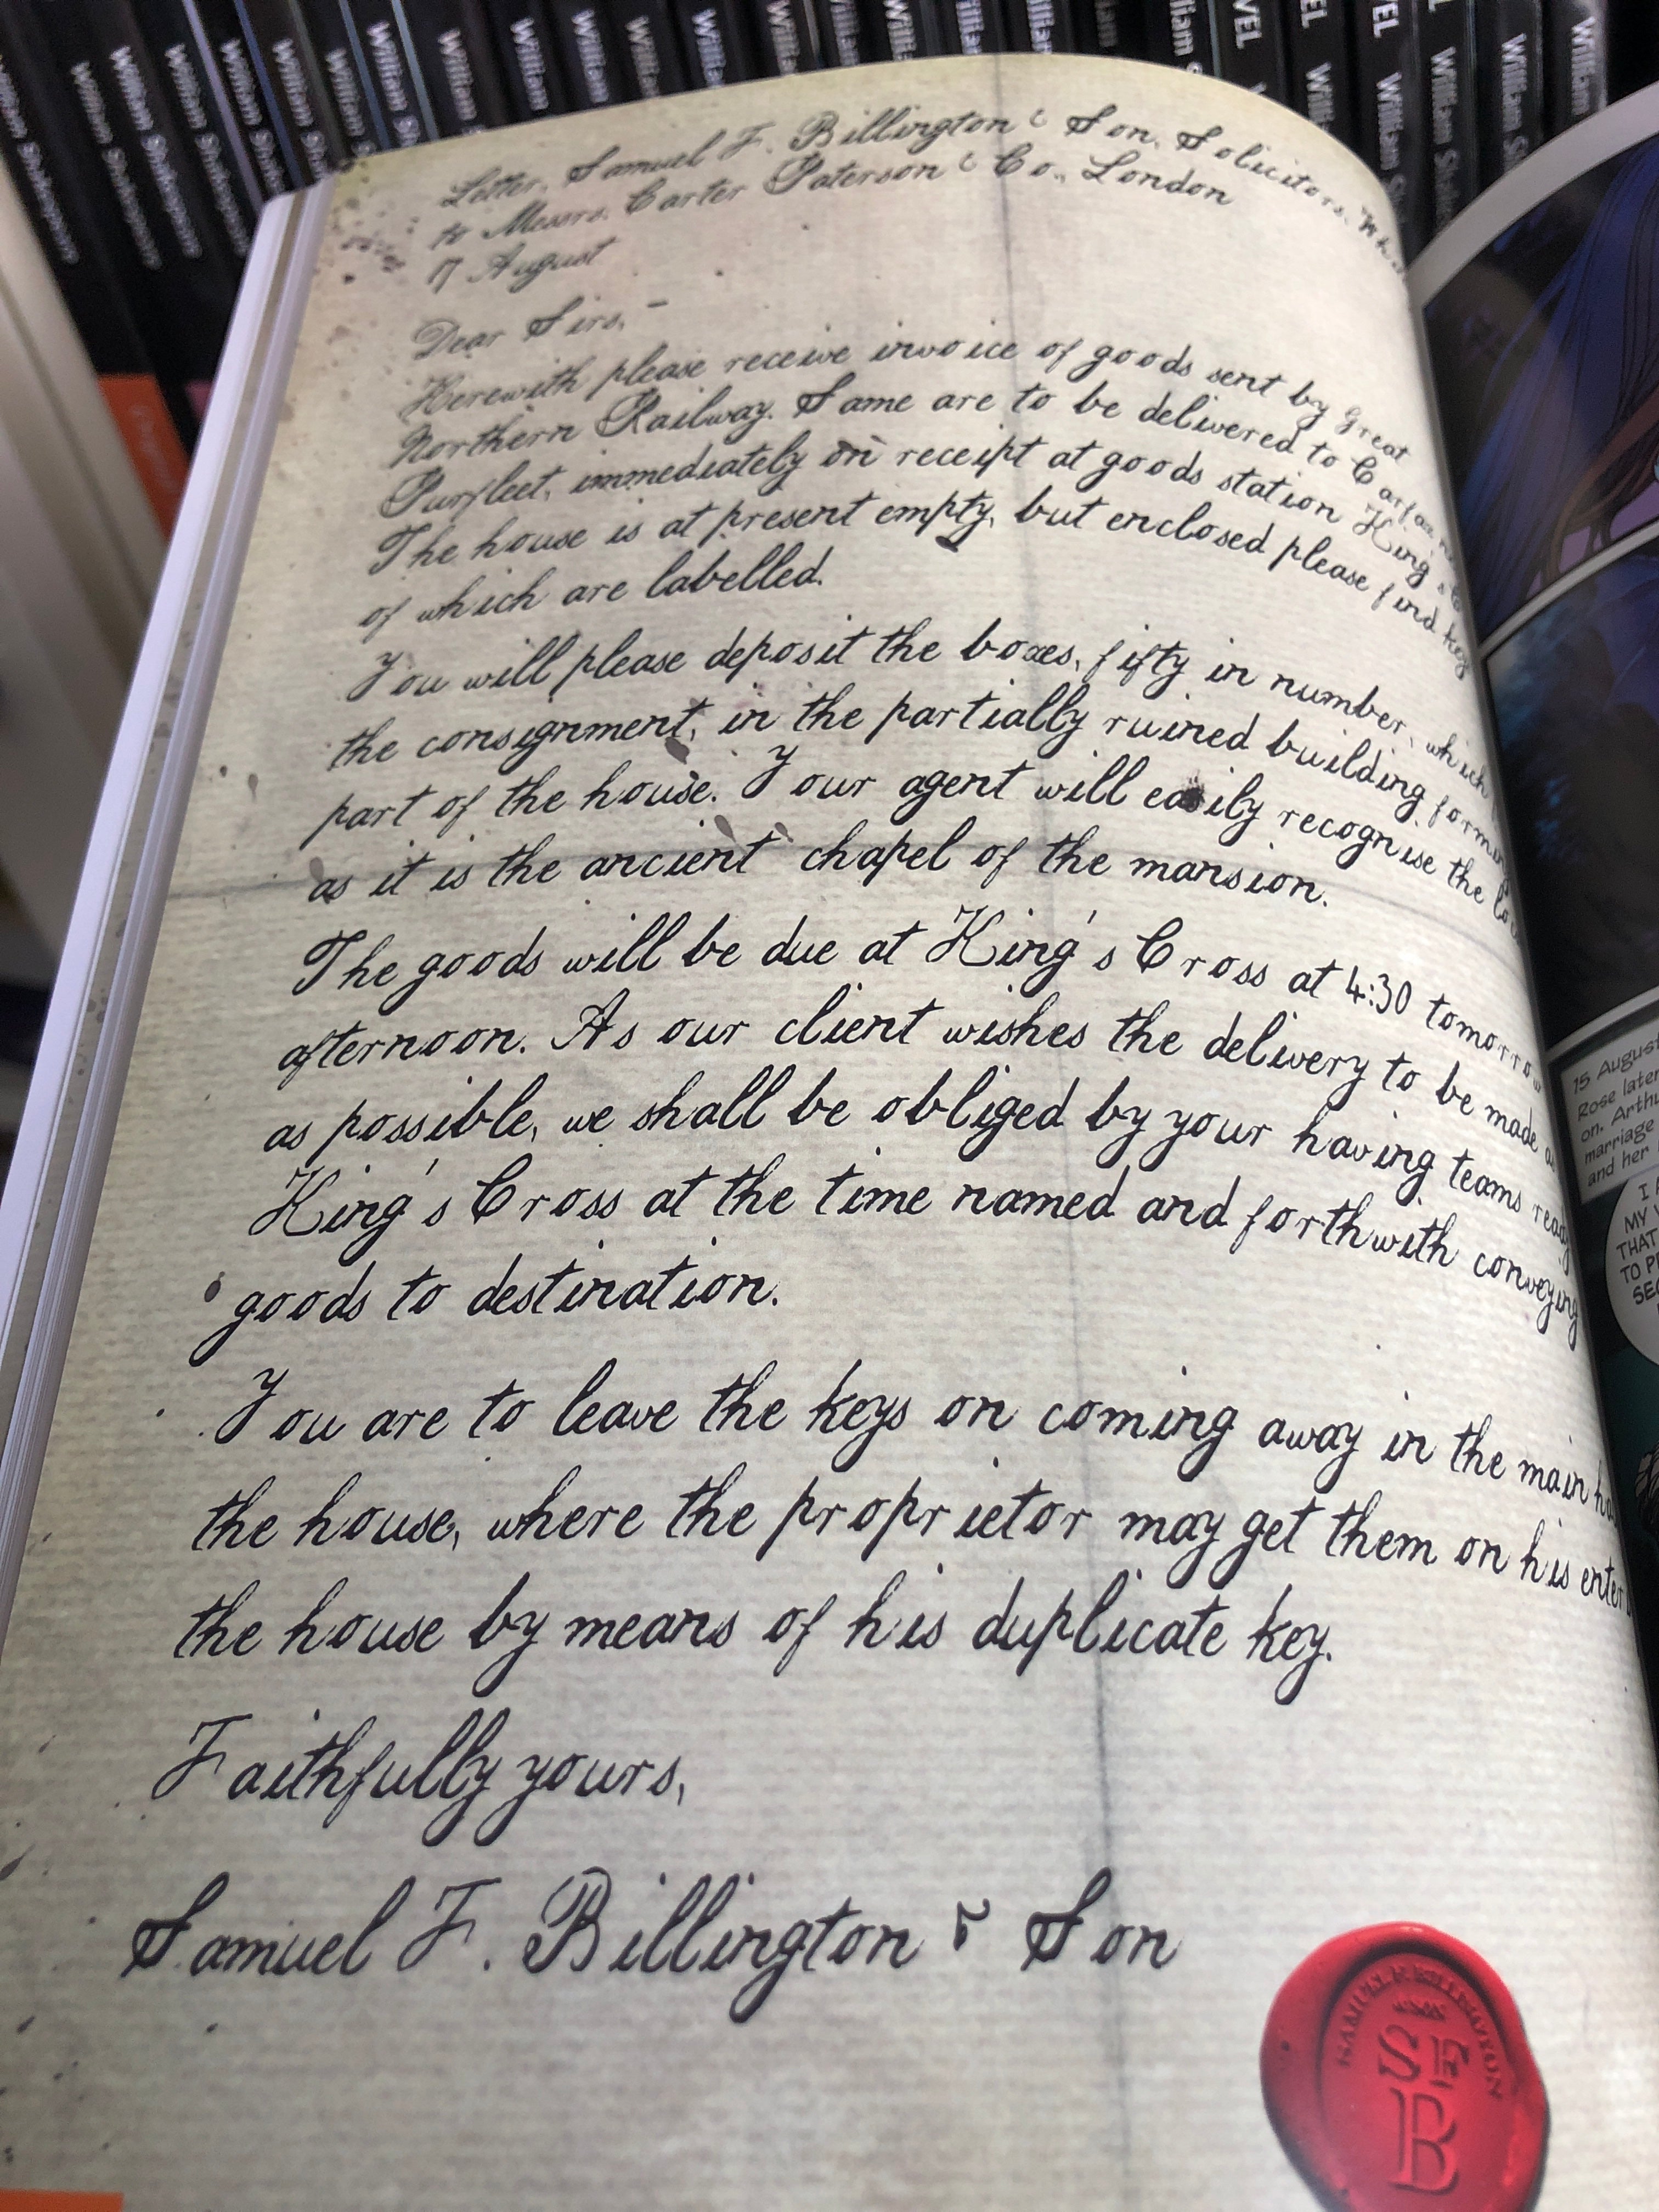 William Shakespeare
William Shakespeare
William Shakespeare
William
William
William
William
William
William
William
William
Letter, Samuel F. Billington & Son, Solicitors,
to Messrs. Carter Paterson & Co., London
17 August
Dear Sirs, –
Herewith please receive invoice of goods sent by Great
Northern Railway. Same are to be delivered to Carfax
Purfleet, immediately on receipt at goods station King's
The house is at present empty, but enclosed please find
of which are labelled.
You will please deposit the boxes, fifty in number, which
the consignment, in the partially ruined building forming
part of the house. Your agent will easily recognise the
as it is the ancient chapel of the mansion.
The goods will be due at King's Cross at 4:30 tomorrow
afternoon. As our client wishes the delivery to be made
as possible, we shall be obliged by your having teams ready
King's Cross at the time named and forthwith conveying
goods to destination.
You are to leave the keys on coming away in the main
the house, where the proprietor may get them on his
the house by means of his duplicate key.
Faithfully yours,
Samuel F. Billington & Son
SAMUEL F. BILLINGTON
SF
B
15 August
Rose later
on. Arthu
marriage
and her
I
MY
THAT